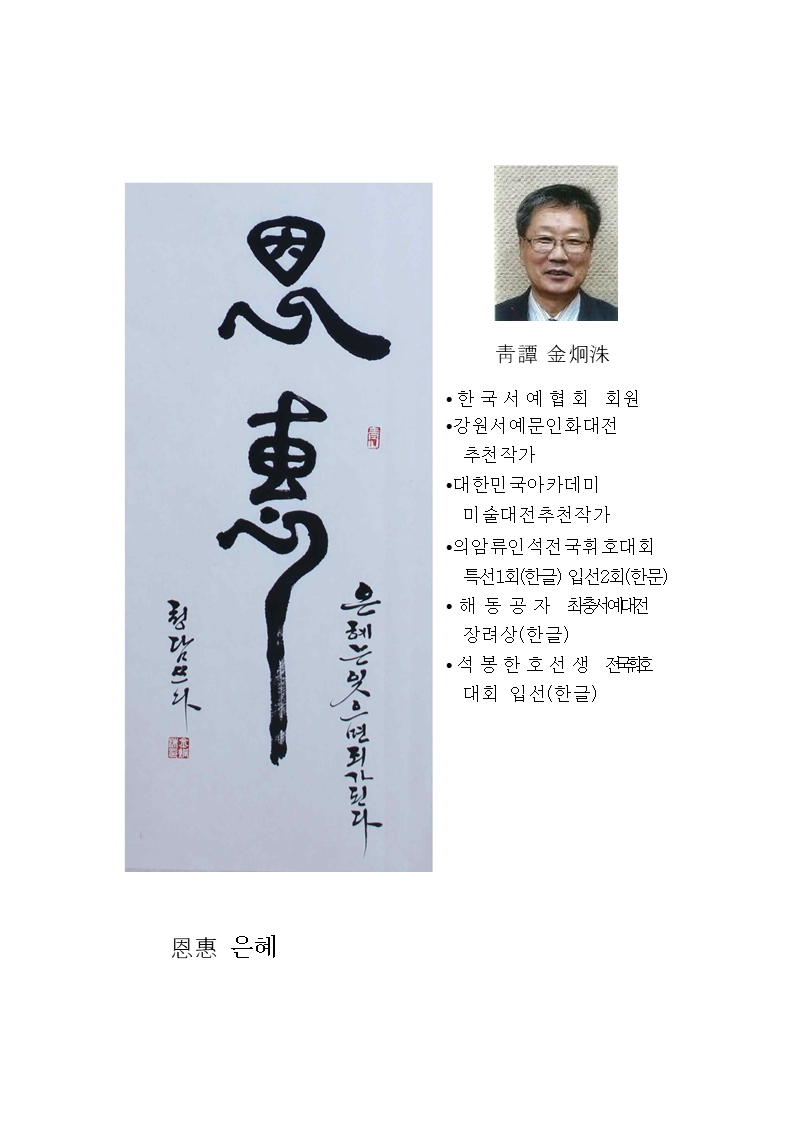 恩
惠
은혜는 잊으면 죄가 된다
청담 쓰다
靑譚 金炯洙
•한국서예협회 회원
•강원서예문인화대전
추천작가
•대한민국아카데미
미술대전추천작가
•의암류인석전국휘호대회
특선1회(한글) 입선2회(한문)
•해동공자 최충서예대전
장려상(한글)
•석봉한호선생 전국휘호
대회 입선(한글)
恩惠 은혜